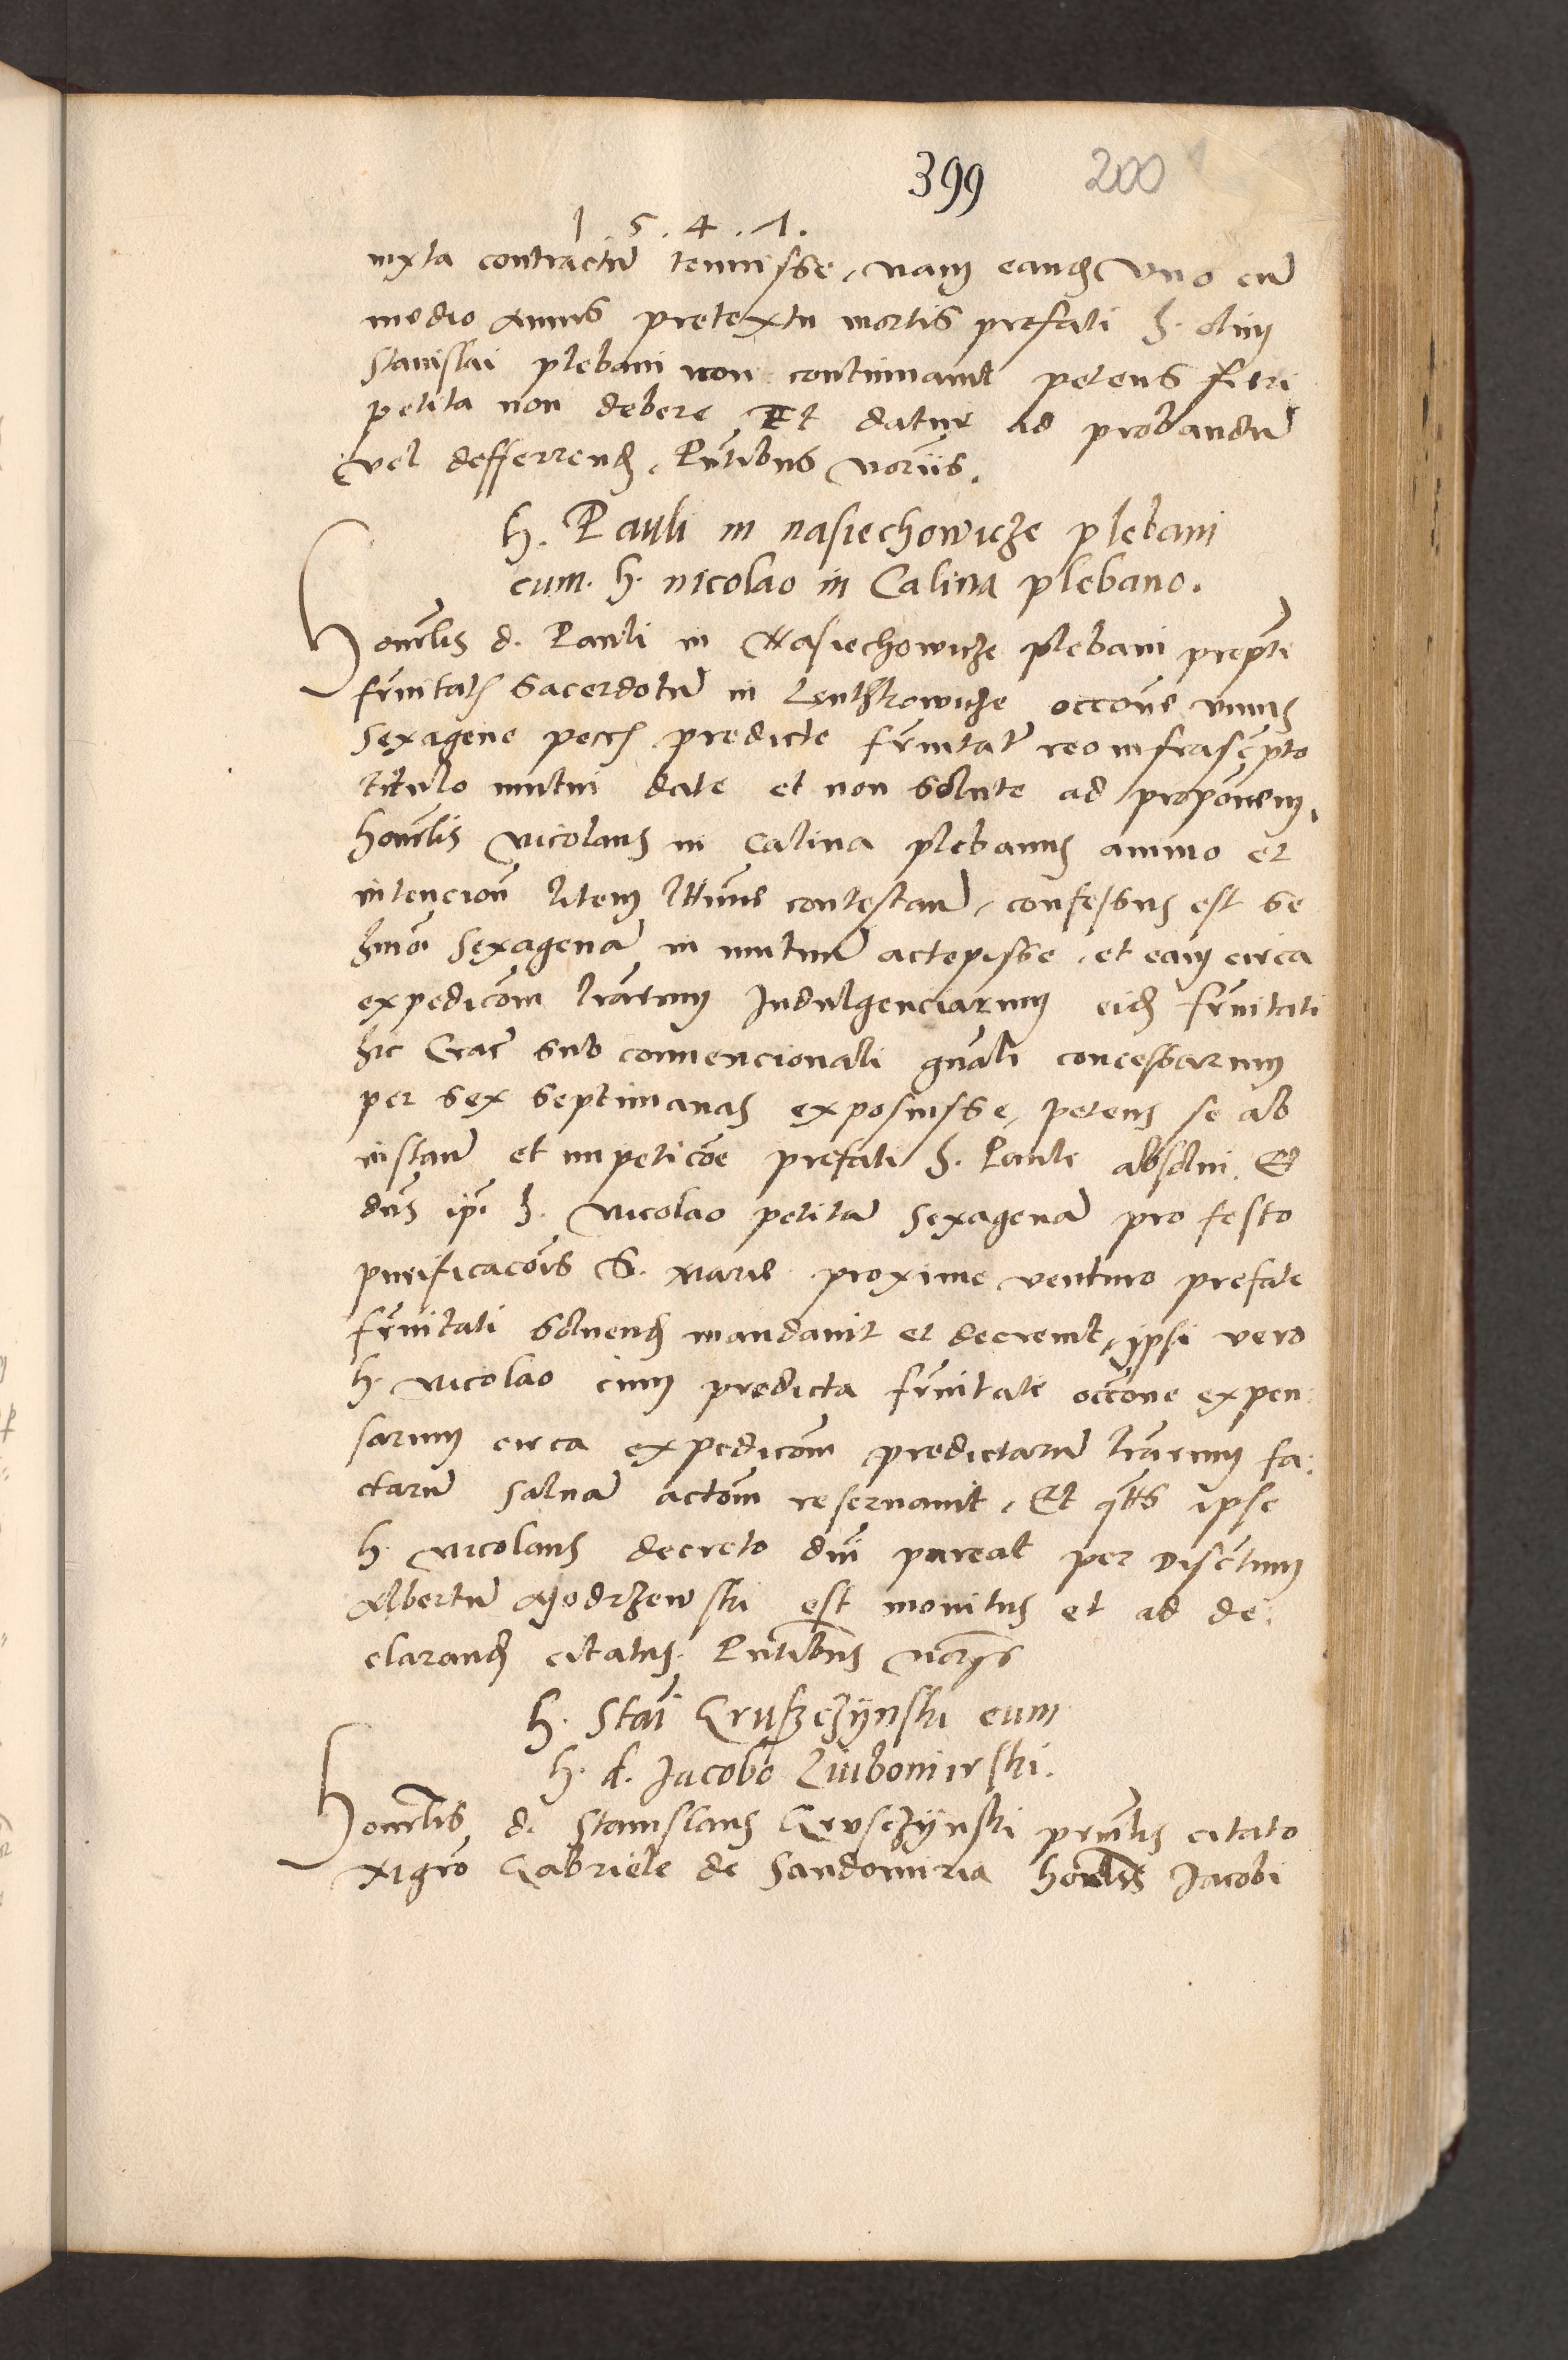 399 200
1.5.4.1.
iuxta contractũ tenuisse, nam eandẽ uno cũ
medio annis pretextu mortis prefati h. olim
Stanislai plebani non continuauit petens fieri
petita non debere Et datur ad probandũ
vel defferrendũ. Pñtibus Notriis.
h. Pauli in nasiechowicze plebani
cum. h. nicolao in Calina plebano.
Honorablis d. Pauli in Nasiechowicze plebani prepti
frnitatis sacerdotũ in Lenthkowicze occone unius
Sexagene pecc. predicte frnitati reo infrascpto
titulo mutui date et non solute ad proponem.
honorablis Nicolaus in Calina plebanus animo et
intencione litem lttime contestanð, confessus est se
hmõi Sexagenã in mutuũ accepisse, et eam circa
expedicõem lrarum Indulgenciarum eidẽ frnitati
hic Crac̃ sub conuencionali gnali concessarum
per sex septimanas exposuisse, petens se ab
instanc̃ et impeticõe prefati h. Pauli absolui. Et
dñs ipi h. Nicolao petitã Sexagenã pro festo
purificacõis S. Marie proxime venturo prefate
frnitati soluendã mandauit et decreuit, ipsi vero
h. Nicolao cum predicta frnitate occõne expen:
sarum circa expedicõem predictarũ lrarum fa:
ctarũ saluã actõem reseruauit. Et qtts ipse
h. Nicolaus decreto dñi pareat per discretum
Albertũ Modrzewski est monitus et ad de:
clarandũ citatus. Pñtibus Notriis
h. Stai Gruszczÿnski cum
h. d. Jacobo Liubomirski.
Honorablis d. Stanislaus Gruszczÿnski principalis citato
Mgro Gabriele de Sandomiria honorablis Jacobi